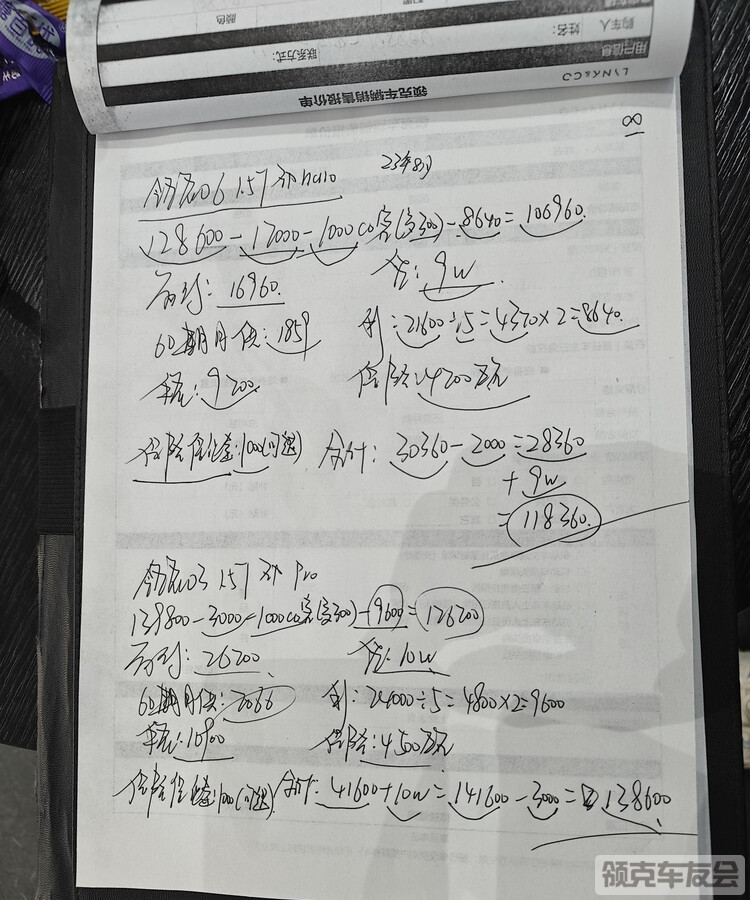 领克车辆销售报价单
LYNK&CO
用户信息
购车人
姓名:
联系方式:
颜色
8
23年8月
领克06 1.5T 两驱 halo
128600-12000-1000co客(写300)-8640=106960
首付:16960
贷:9w
60期月供:1859
利:21600÷5=4320×2=8640
车税:9200
保险:4200左右
保险保证金:1000(可退)
合计:30360-2000=28360
+9w
=118360
领克03 1.5T Pro
139800-3000-1000co客(写300)-9600=126200
首付:26200
贷:10w
60期月供:2066
利:24000÷5=4800×2=9600
车税:10900
保险:4500左右
保险保证金:1000(可退)
合计:41600+10w=141600-3000=138600
领克车友会